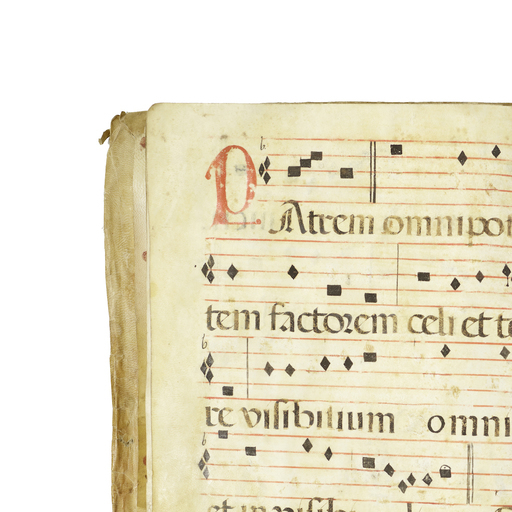 PAtrem omnipot
tem factorem celi et te
re visibilium omni
et in visibi